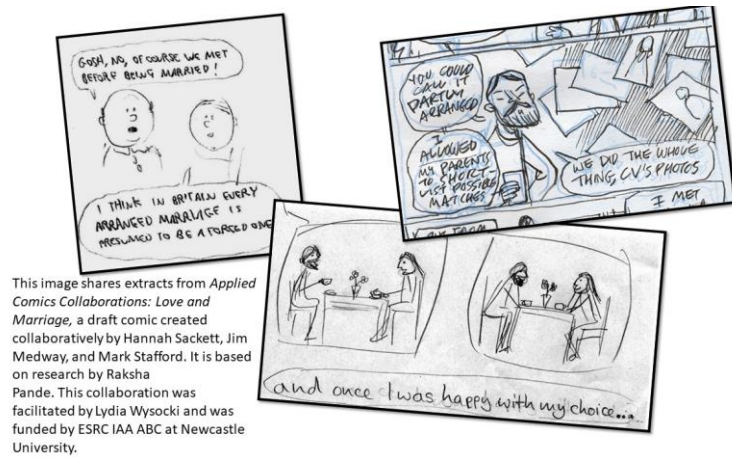 GOSH, NO, OF COURSE WE MET
BEFORE BEING MARRIED!
I THINK IN BRITAIN EVERY
ARRANGED MARRIAGE IS
PRESUMED TO BE A FORCED ONE
YOU COULD
CALL IT
PARTLY
ARRANGED
I
ALLOWED
MY PARENTS
TO SHORT-
LIST POSSIBLE
MATCHES
WE DID THE WHOLE
THING, CV'S PHOTOS
I MET
and once I was happy with my choice...
This image shares extracts from Applied
Comics Collaborations: Love and
Marriage, a draft comic created
collaboratively by Hannah Sackett, Jim
Medway, and Mark Stafford. It is based
on research by Raksha
Pande. This collaboration was
facilitated by Lydia Wysocki and was
funded by ESRC IAA ABC at Newcastle
University.